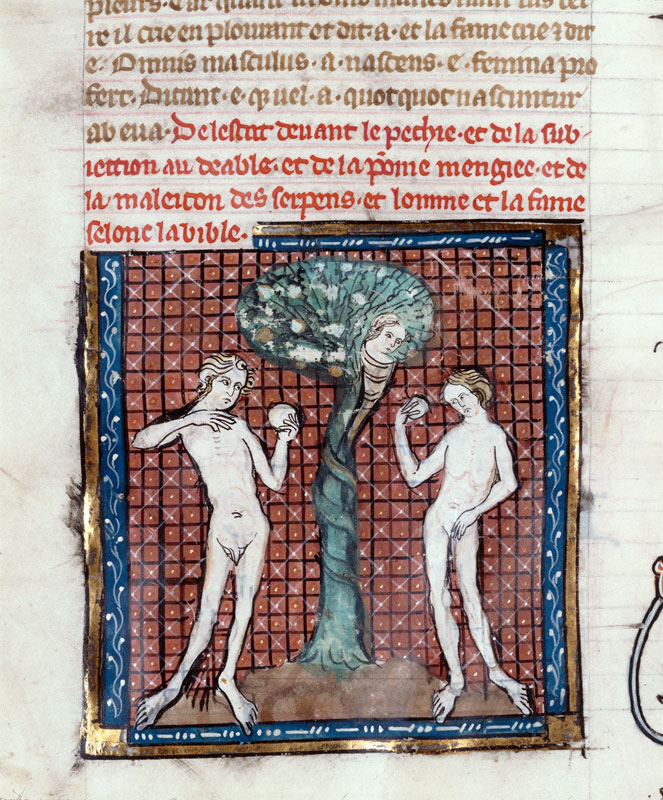 re il crie en plourant et dit· a· et la fame crie ⁊ dit
e· Omnis masculus· a· nascens· e· femina pro
fert· Dicant· e· quel· a· quotquot nascuntur
ab eua· De lestat deuant le pechie· et de la sub-
iection au deable· et de la pōme mengiee· et de
la maleicon des serpens· et lomme et la fame
selonc la bible·